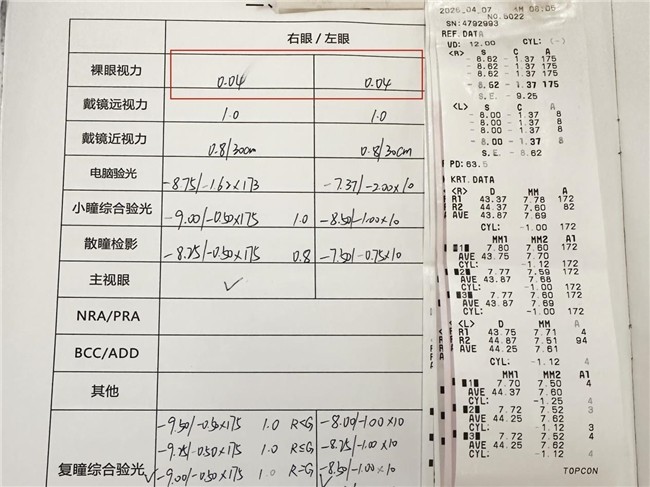 右眼 / 左眼
裸眼视力 0.04 0.04
戴镜远视力 1.0 1.0
戴镜近视力 0.8/30cm 0.8/30cm
电脑验光 -8.75/-1.62×173 -7.37/-2.00×10
小瞳综合验光 -9.00/-0.50×175 1.0 -8.50/-1.00×10
散瞳检影 -8.75/-0.50×175 0.8 -7.50/-0.75×10
主视眼 ✓
NRA/PRA
BCC/ADD
其他
-9.50/-0.50×175 1.0 R<G -8.00/-1.00×10
-9.25/-0.50×175 1.0 R≤G -8.25/-1.00×10
复瞳综合验光 ✓-9.00/-0.50×175 1.0 R=G ✓-8.50/-1.00×10
2026_04_07 AM 08:06
NO.5022
SN:4792993
REF.DATA
VD: 12.00 CYL: (-)
<R> S C A
- 8.62 - 1.37 175
- 8.62 - 1.37 175
- 8.62 - 1.37 175
- 8.62 - 1.37 175
S.E. - 9.25
<L> S C A
- 8.00 - 1.37 8
- 8.00 - 1.37 8
- 8.00 - 1.37 8
- 8.00 - 1.37 8
S.E. - 8.62
PD:63.5
KRT.DATA
<R> D MM A
R1 43.37 7.78 172
R2 44.37 7.60 82
AVE 43.87 7.69
CYL: -1.00 172
MM1 MM2 A1
1 7.80 7.60 172
AVE 43.75 7.70
CYL: -1.12 172
2 7.77 7.59 172
AVE 43.87 7.68
CYL: -1.00 172
3 7.77 7.60 172
AVE 43.87 7.69
CYL: -1.00 172
<L> D MM A
R1 43.75 7.71 4
R2 44.87 7.51 94
AVE 44.25 7.61
CYL: -1.12 4
MM1 MM2 A1
1 7.70 7.50 4
AVE 44.37 7.60
CYL: -1.25 4
2 7.72 7.52 3
AVE 44.25 7.62
CYL: -1.12 3
3 7.72 7.52 4
AVE 44.25 7.62
CYL: -1.12 4
TOPCON